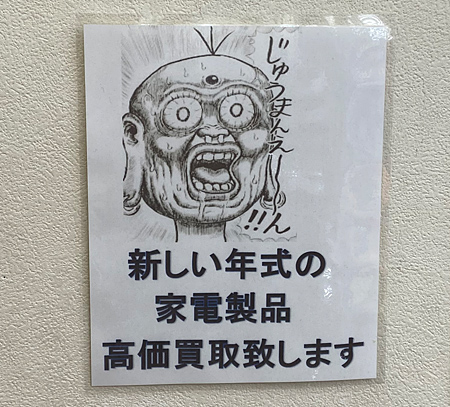 じゅうまんえーーん!!
新しい年式の
家電製品
高価買取致します